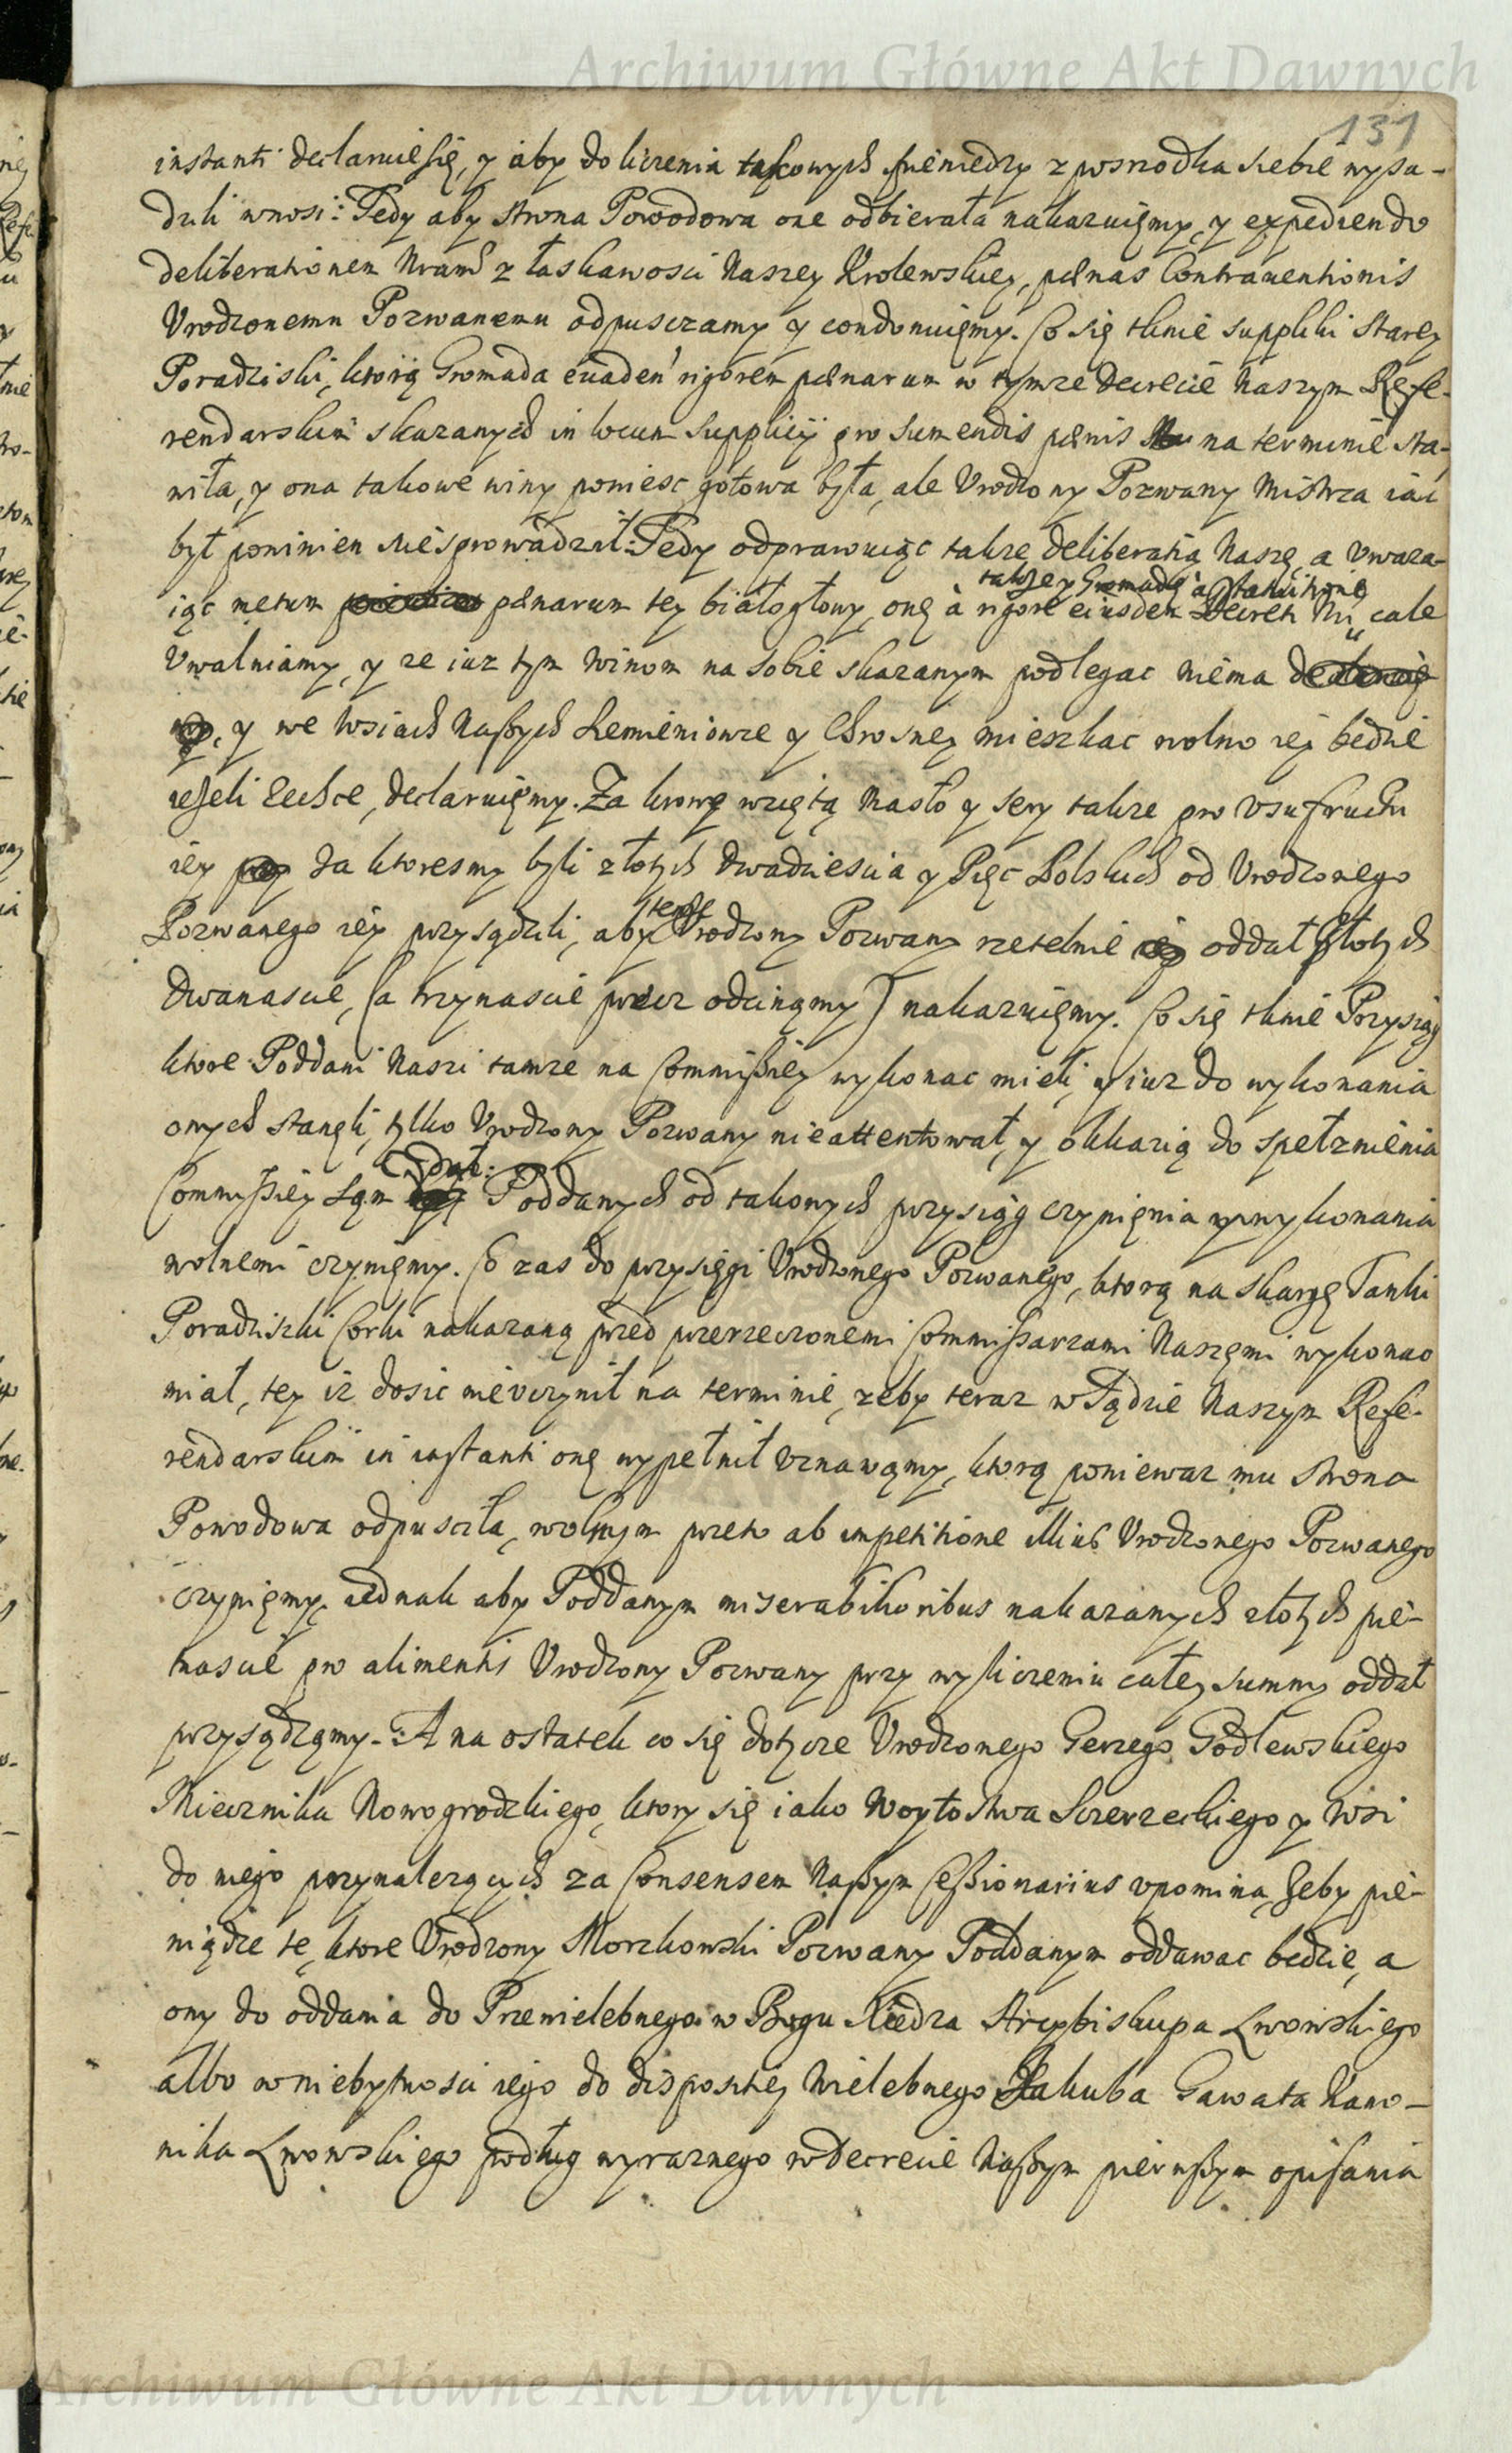 Archiwum Główne Akt Dawnych
131
instanti declaruie się, y aby do liczenia takowych pieniedzy z posrodka siebie wysa-
dzili wnosi: Tedy aby strona Powodowa one odbierała nakazuięmy, y expediendo
deliberationem Nram z łaskawosci Naszey Krolewskiey, pænas Contrauentionis
Vrodzonemu Pozwanemu odpusczamy y condonuięmy. Co się tknie suppliki Starey
Poradziski, ktorą Gromada euaden' rigorem pænarum w tymze Decrecie Naszym Refe-
rendarskim skazanych in locum supplicij pro sumendis pænis na terminie sta-
wiła, y ona takowe winy poniesc gotowa była, ale Vrodzony Pozwany Mistrza iak
był powinien niesprowadził: Tedy odprawuiąc takze deliberatią Naszę, a vwaza-
takze y Gromadę à
iąc metum pænarum tey białogłowy, onę à rigore eiusdem Decreti Nri cale
Vwalniamy, y ze iuz tym winom na sobie skazanym podlegac niema
y we wsiach Naszych Remieniowie y Chrosney mieszkac wolno iey bedzie
ieseli zechce, declaruięmy. Za krowę wziętą Masło y sery takze pro vsufructu
iey za ktoresmy byli złotych dwadziescia y Pięc Polskich od Vrodzonego
tenze
Pozwanego iey przysądzili, aby Vrodzony Pozwany rzetelnie oddał złotych
dwanascie, (a trzynascie precz odcinamy) nakazuięmy. Co się tknie Przysiąg
ktore Poddani Naszi tamze na Commissiey wykonac mieli, y iuz do wykonania
onych stanęli, tylko Vrodzony Pozwany nieattentował, y okkazią do spełznienia
dał:
Commissiey sąm Poddanych od takowych przysiąg czynięnia y wykonania
wolnemi czynięmy. Co zas do przysięgi Vrodzonego Pozwanego, ktorą na skargę Tanki
Poradziszki Corki nakazaną przed przerzeczonemi Commissarzami Naszęmi wykonac
miał, tey iz dosic nievczynił na terminie, zeby teraz w Sądzie Naszym Refe-
rendarskim in instanti onę wypełnił vznawąmy, ktorą poniewaz mu strona
Powodowa odpusciła, wolnym przeto ab impetitione illius Vrodzonego Pozwanego
czynięmy, iednak aby Poddanym miserabilioribus nakazanych złotych pie-
tnascie pro alimentis Vrodzony Pozwany przy wyliczeniu całey summy oddał
przysądzamy. A na ostatek co się dotycze Vrodzonego Gerzego Godlewskiego
Miecznika Nowogrodzkiego, ktory się iako Woytostwa Sczerzeckiego y Wsi
do niego przynalezących za Consensem Naszym Cessionarius vpomina, zeby pie-
niądze te, ktore Vrodzony Morzkowski Pozwany Poddanym oddawac bedzie, a
ony do oddania do Przewielebnego w Bogu Xiedza Arcybiskupa Lwowskiego
albo w niebytnosci iego do disposiciey Wielebnego Jakuba Gawata Kano-
nika Lwowskiego podług wyraznego w Decrecie Naszym pierwszym opisania
Archiwum Główne Akt Dawnych